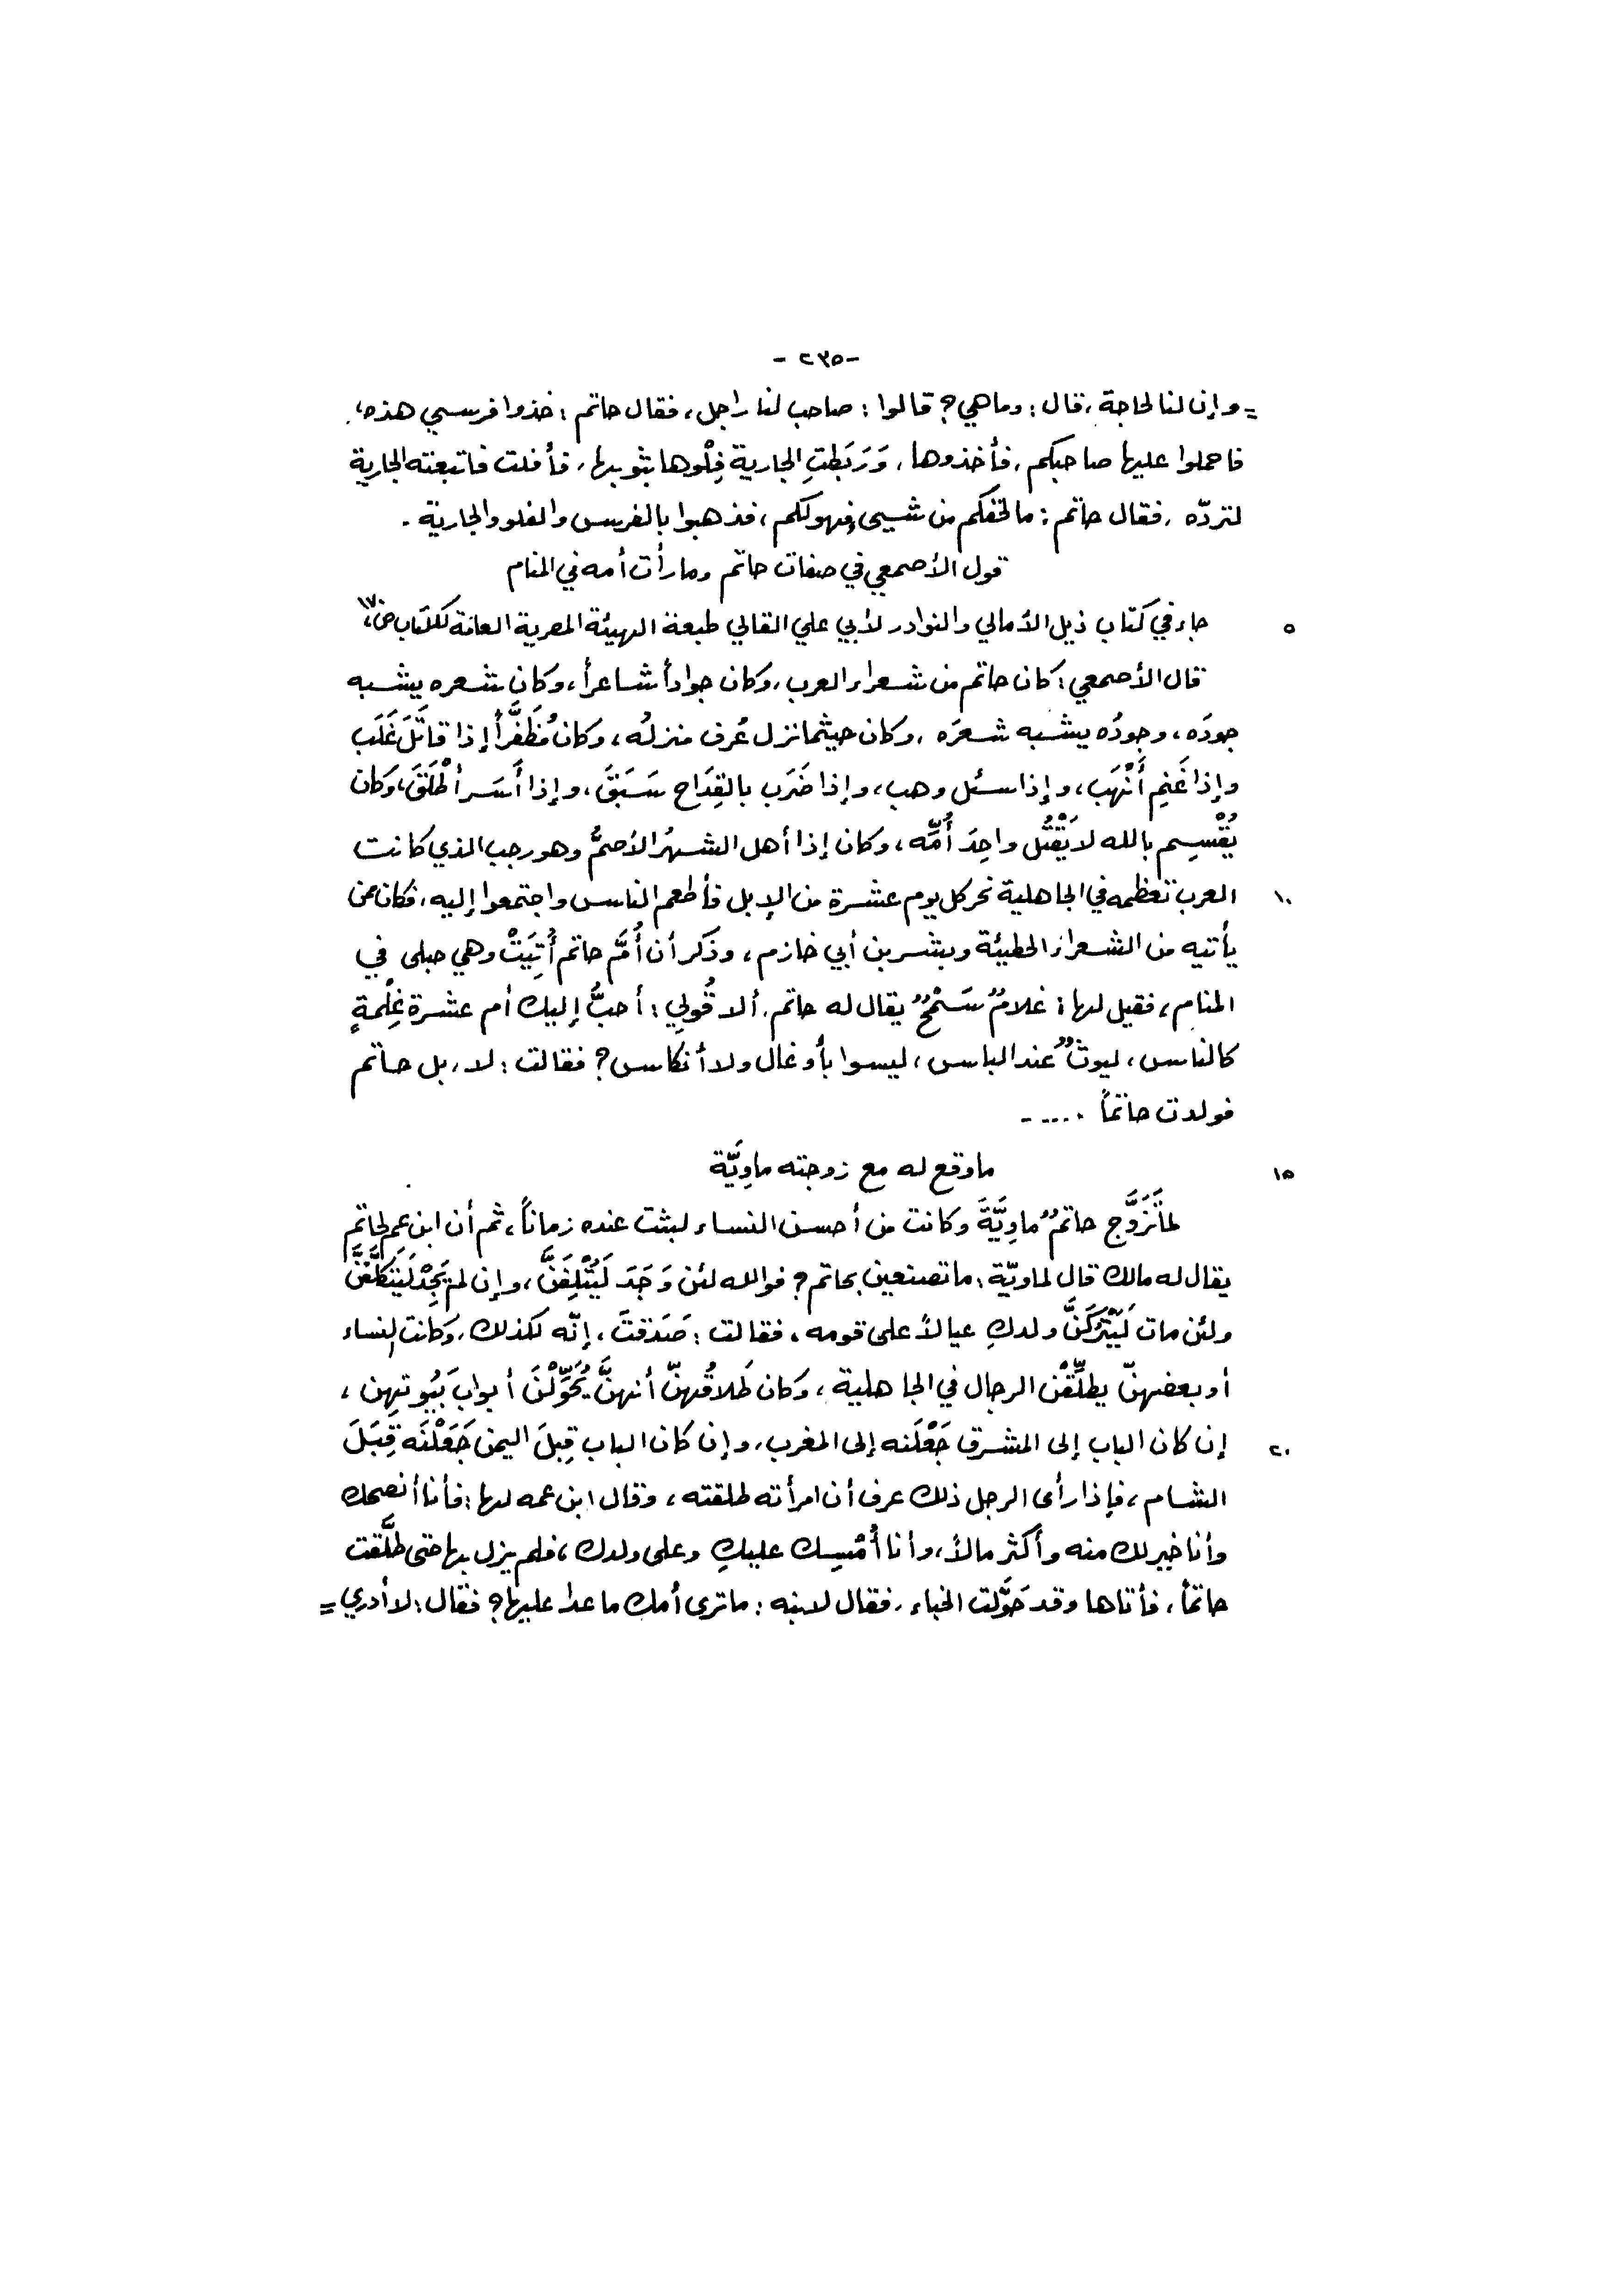 - ٢٣٥ -
= وإن لنا لحاجة ، قال : وما هي ؟ قالوا : صاحب لنا راجل ، فقال حاتم : خذوا فرسي هذه ،
فاحملوا عليها صاحبكم ، فأخذوها ، وَرَبَطتِ الجارية فِلْوها بثوبها ، فأفلت فاتبعته الجارية
لتردّه ، فقال حاتم : ما لحقكم من شيىءٍ فهو لكم ، فذهبوا بالفرس والفلو والجارية .
قول الأصمعي في صفات حاتم وما رأت أمه في المنام
٥ جاء في كتاب ذيل الأمالي والنوادر لأبي علي القالي طبعة الهيئة المصرية العامة للكتاب ص،
قال الأصمعي : كان حاتم من شعراء العرب ، وكان جواداً شاعراً ، وكان شعره يشبه
جودَه ، وجودُه يشبه شعرَه ، وكان حيثما نزل عُرف منزلُه ، وكان مُظَفَّراً إذا قاتَلَ غَلَب
وإذا غَنِم أَنْهَب ، وإذا سئل وهب ، وإذا ضَرَب بالقِدَاح سَبَقَ ، وإذا أَسَر أطْلَقَ ، وكان
يُقْسِم بالله لا يَقْتُل واحِدَ أُمِّه ، وكان إذا أهل الشهرُ الأصمُّ وهو رجب الذي كانت
١٠ العرب تعظمه في الجاهلية نحر كل يوم عشرة من الإبل فأطعم الناس واجتمعوا إليه ، فكان ممن
يأتيه من الشعراء الحطيئة وبشر بن أبي خازم ، وذكر أن أُمَّ حاتم أُتِيَتْ وهي حبلى في
المنام ، فقيل لها : غلامٌ سَمْحٌ يقال له حاتم ، ألا قُولي : أحبُّ إليك أم عشرة غِلْمةٍ
كالناس ، ليوثٌ عند الباس ، ليسوا بأوغال ولا أنكاس ؟ فقالت : لا ، بل حاتم
فولدت حاتماً .....
١٥ ما وقع له مع زوجته ماوِيَّة
لما تَزَوَّج حاتمٌ ماوِيَّةَ وكانت من أحسن النساء لبثت عنده زماناً ، ثم أن ابن عم لحاتم
يقال له مالك قال لماويّة : ما تصنعين بحاتم ؟ فوالله لئن وَجَدَ لَيُتْلِفَنَّ ، وإن لم يَجِدْ لَيَتَكَلَّفَنَّ
ولئن مات لَيَتْرُكَنَّ ولدكِ عيالاً على قومه ، فقالت : صَدَقتَ ، إنّه لكذلك ، وكانت النساء
أو بعضهنّ يطلِّقْن الرجال في الجاهلية ، وكان طَلاقُهنّ أنهنَّ يُحَوِّلْنَ أبوابَ بُيُوتهن ،
٢٠ إن كان الباب إلى المشرق جَعْلَنه إلى المغرب ، وإن كان الباب قِبلَ اليمن جَعَلْنَه قِبَلَ
الشام ، فإذا رأى الرجل ذلك عرف أن امرأته طلقته ، وقال ابن عمه لها : فأنا أنصحك
وأنا خير لك منه وأكثر مالاً ، وأنا أُمْسِك عليكِ وعلى ولدك ، فلم يزل بها حتى طلَّقت
حاتماً ، فأتاها وقد حَوَّلت الخباء ، فقال لابنه : ما ترى أمك ما عدا عليها ؟ فقال : لا أدري =